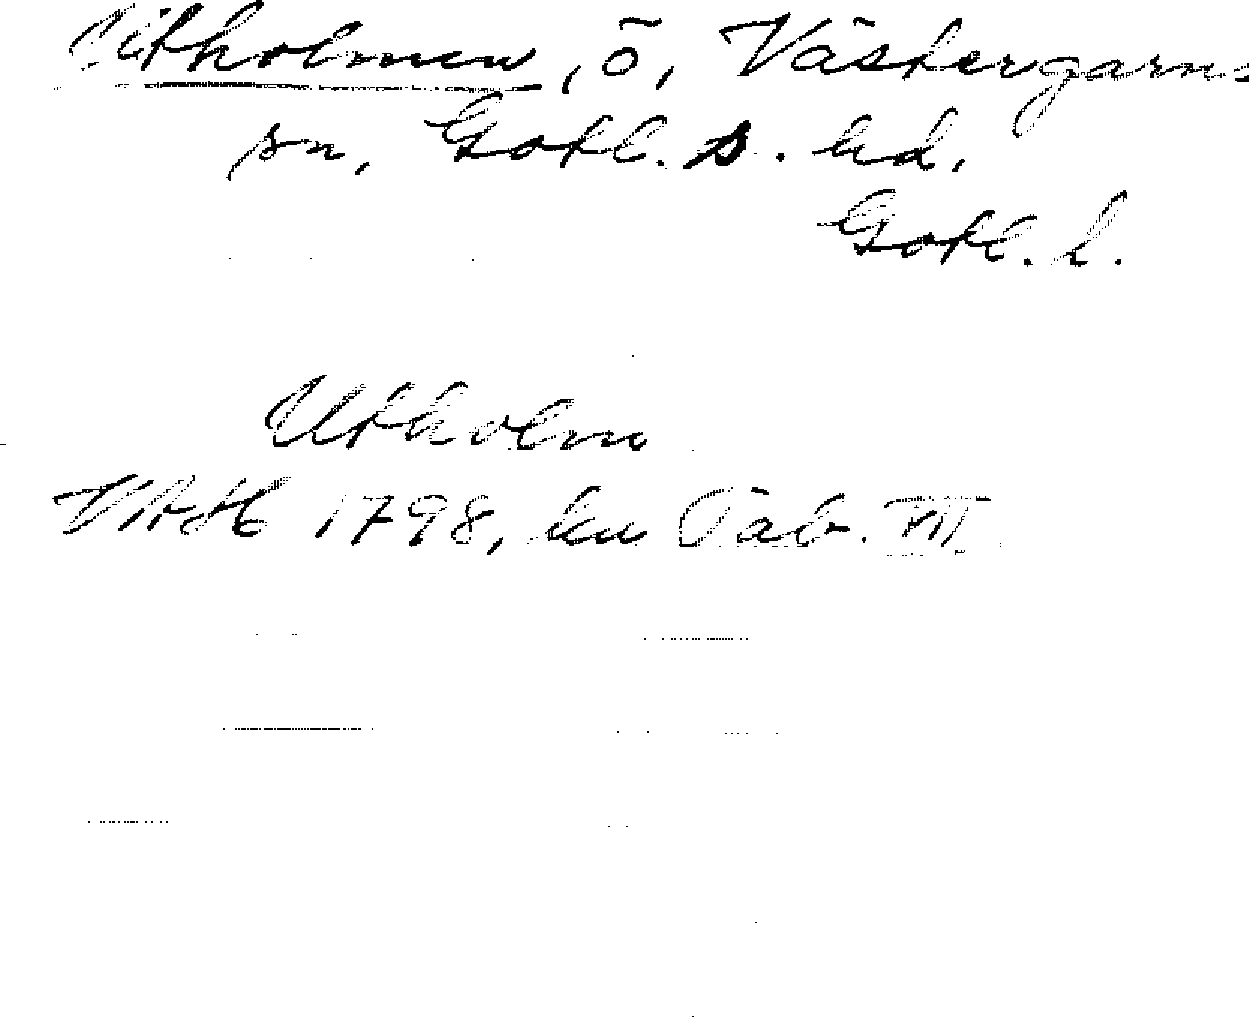 Utholmen, ö, Västergarns
sn, Gotl. s. hd.
Gotl. l.
Utholm
VAH 1798, Tab. VII